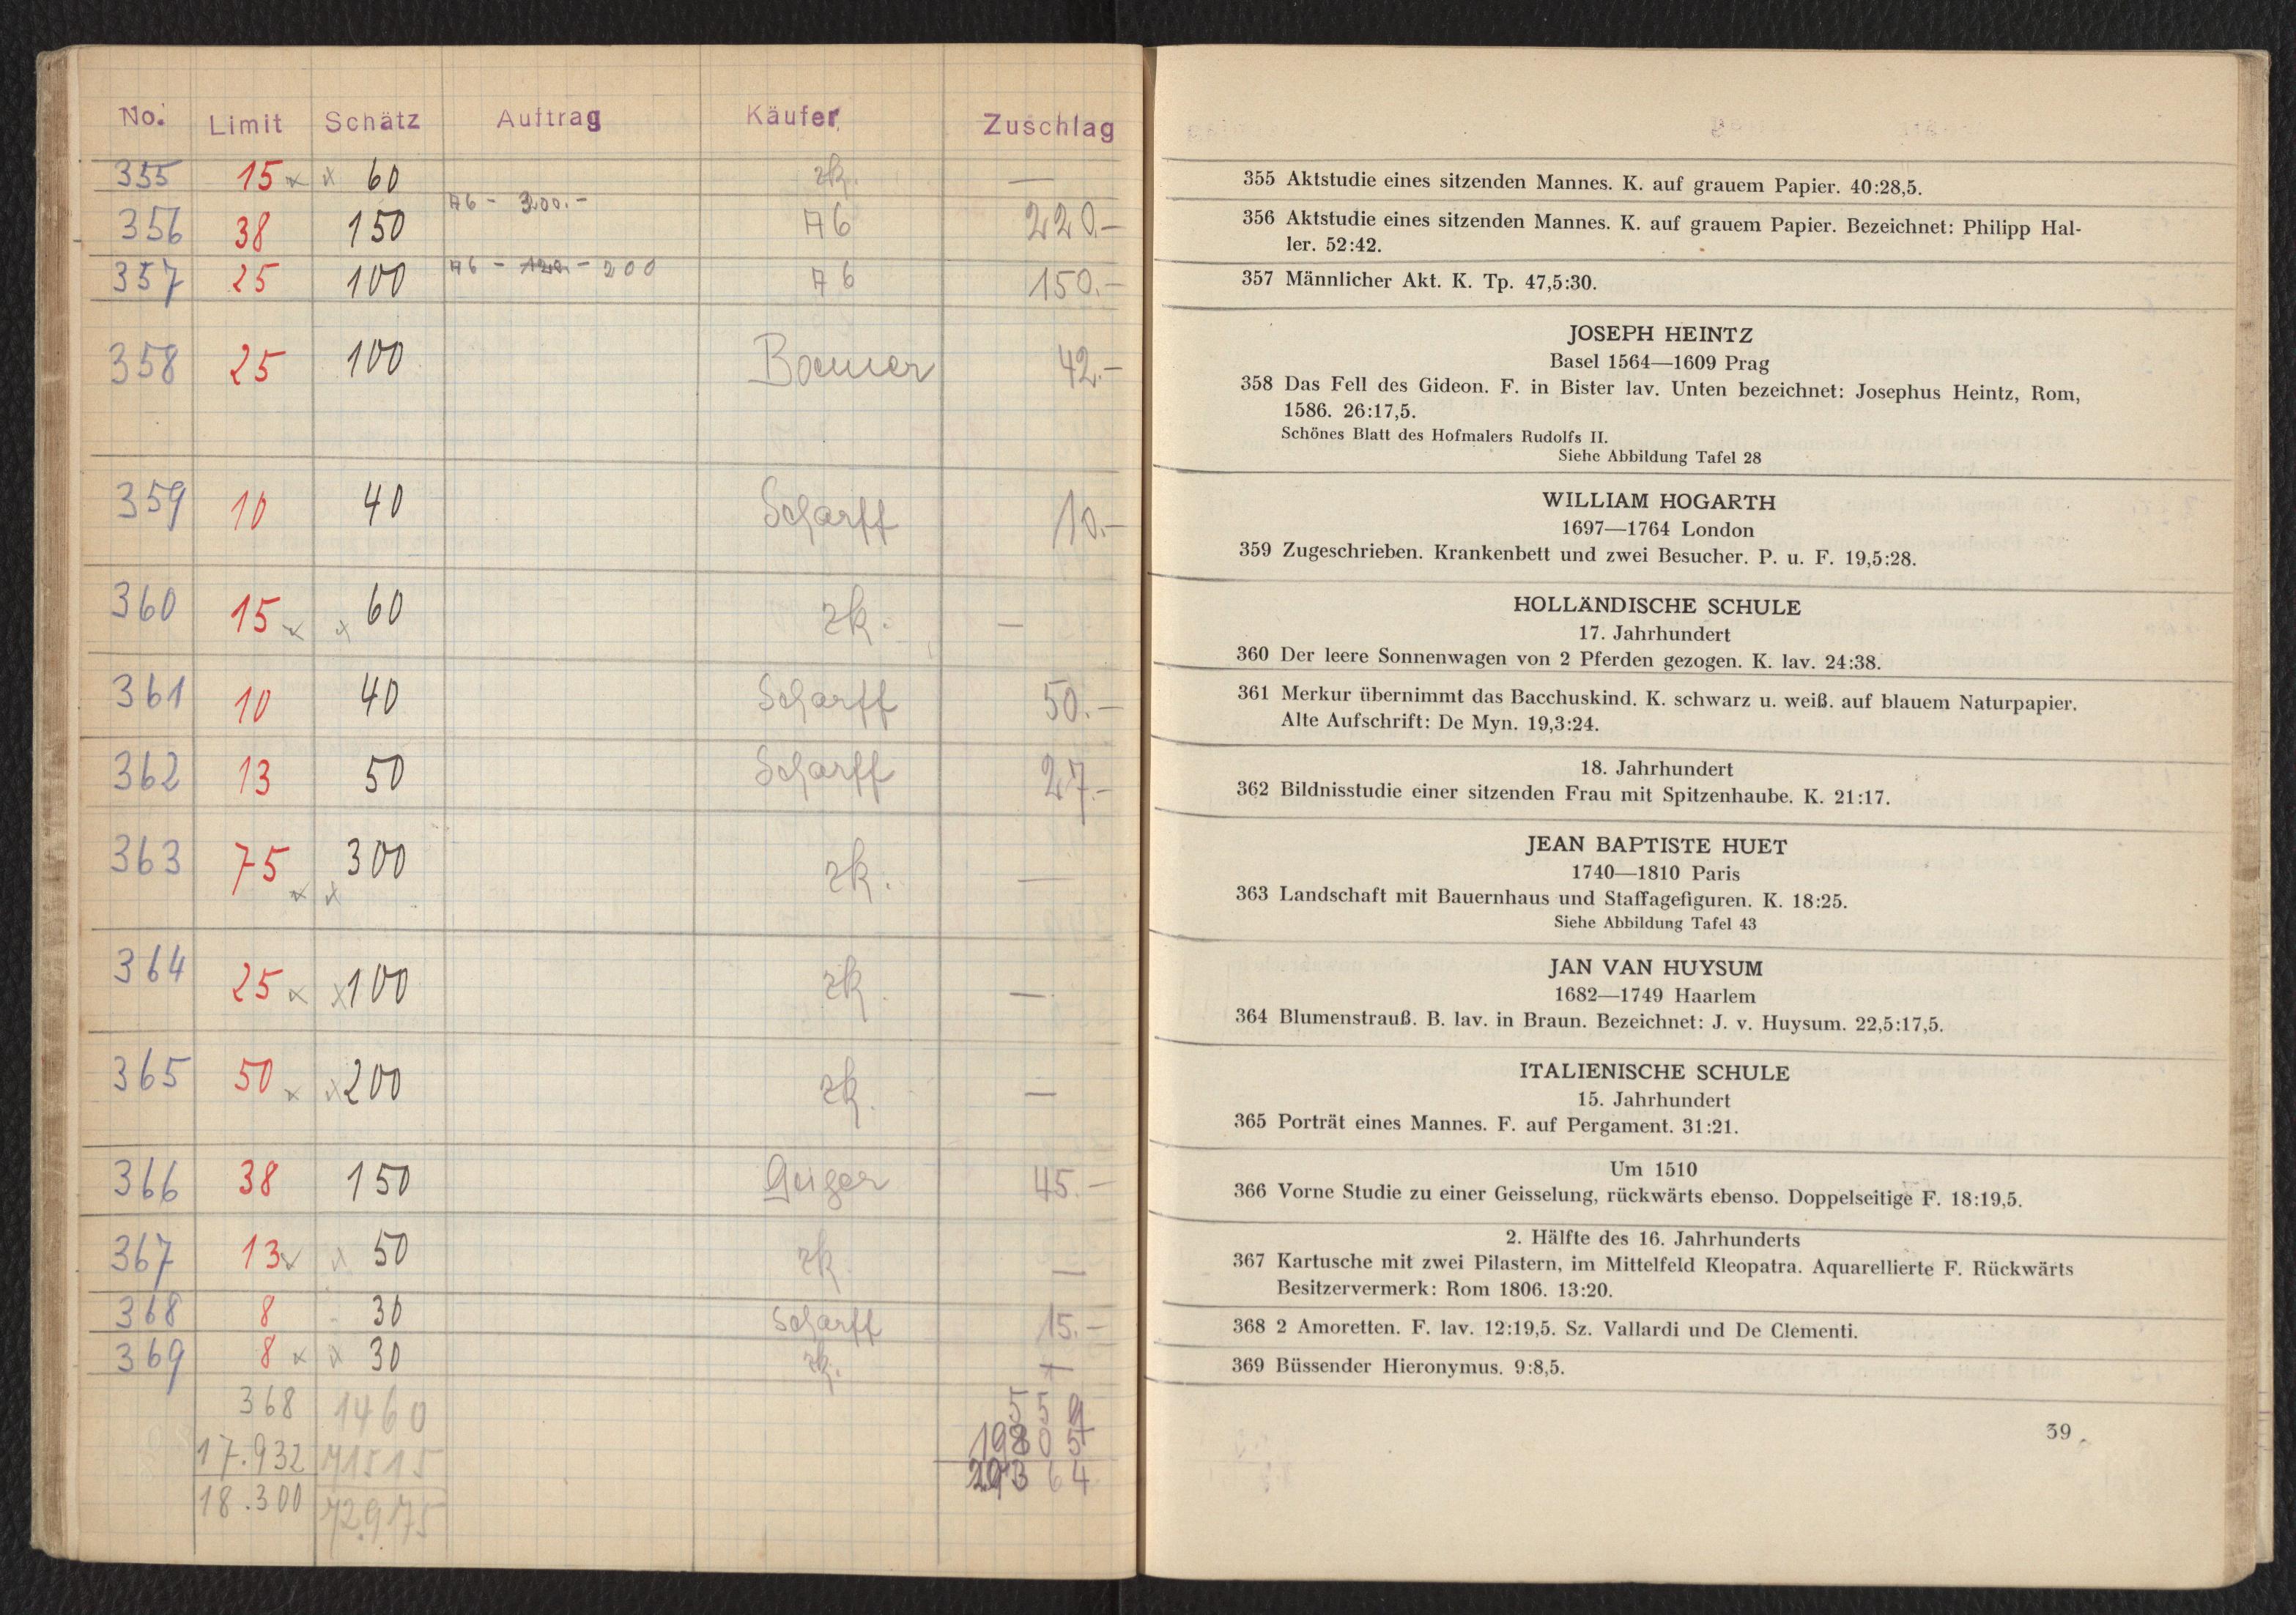 No. Limit Schätz Auftrag Käufer Zuschlag
355 15 x x 60 zk. —
356 38 150 A6 - 300.- A6 220.-
357 25 100 A6 - - 200 A6 150.-
358 25 100 Boerner 42.-
359 10 40 Scharff 10.-
360 15 x x 60 zk. —
361 10 40 Scharff 50.-
362 13 50 Scharff 27.-
363 75 x x 300 zk. —
364 25 x x 100 zk. —
365 50 x x 200 zk. —
366 38 150 Geiger 45.-
367 13 x x 50 zk. —
368 8 30 Scharff 15.-
369 8 x x 30 zk. —
368 1460 559
17.932 71515
18.300 72.975
355 Aktstudie eines sitzenden Mannes. K. auf grauem Papier. 40:28,5.
356 Aktstudie eines sitzenden Mannes. K. auf grauem Papier. Bezeichnet: Philipp Hal-
ler. 52:42.
357 Männlicher Akt. K. Tp. 47,5:30.
JOSEPH HEINTZ
Basel 1564—1609 Prag
358 Das Fell des Gideon. F. in Bister lav. Unten bezeichnet: Josephus Heintz, Rom,
1586. 26:17,5.
Schönes Blatt des Hofmalers Rudolfs II.
Siehe Abbildung Tafel 28
WILLIAM HOGARTH
1697—1764 London
359 Zugeschrieben. Krankenbett und zwei Besucher. P. u. F. 19,5:28.
HOLLÄNDISCHE SCHULE
17. Jahrhundert
360 Der leere Sonnenwagen von 2 Pferden gezogen. K. lav. 24:38.
361 Merkur übernimmt das Bacchuskind. K. schwarz u. weiß. auf blauem Naturpapier.
Alte Aufschrift: De Myn. 19,3:24.
18. Jahrhundert
362 Bildnisstudie einer sitzenden Frau mit Spitzenhaube. K. 21:17.
JEAN BAPTISTE HUET
1740—1810 Paris
363 Landschaft mit Bauernhaus und Staffagefiguren. K. 18:25.
Siehe Abbildung Tafel 43
JAN VAN HUYSUM
1682—1749 Haarlem
364 Blumenstrauß. B. lav. in Braun. Bezeichnet: J. v. Huysum. 22,5:17,5.
ITALIENISCHE SCHULE
15. Jahrhundert
365 Porträt eines Mannes. F. auf Pergament. 31:21.
Um 1510
366 Vorne Studie zu einer Geisselung, rückwärts ebenso. Doppelseitige F. 18:19,5.
2. Hälfte des 16. Jahrhunderts
367 Kartusche mit zwei Pilastern, im Mittelfeld Kleopatra. Aquarellierte F. Rückwärts
Besitzervermerk: Rom 1806. 13:20.
368 2 Amoretten. F. lav. 12:19,5. Sz. Vallardi und De Clementi.
369 Büssender Hieronymus. 9:8,5.
39